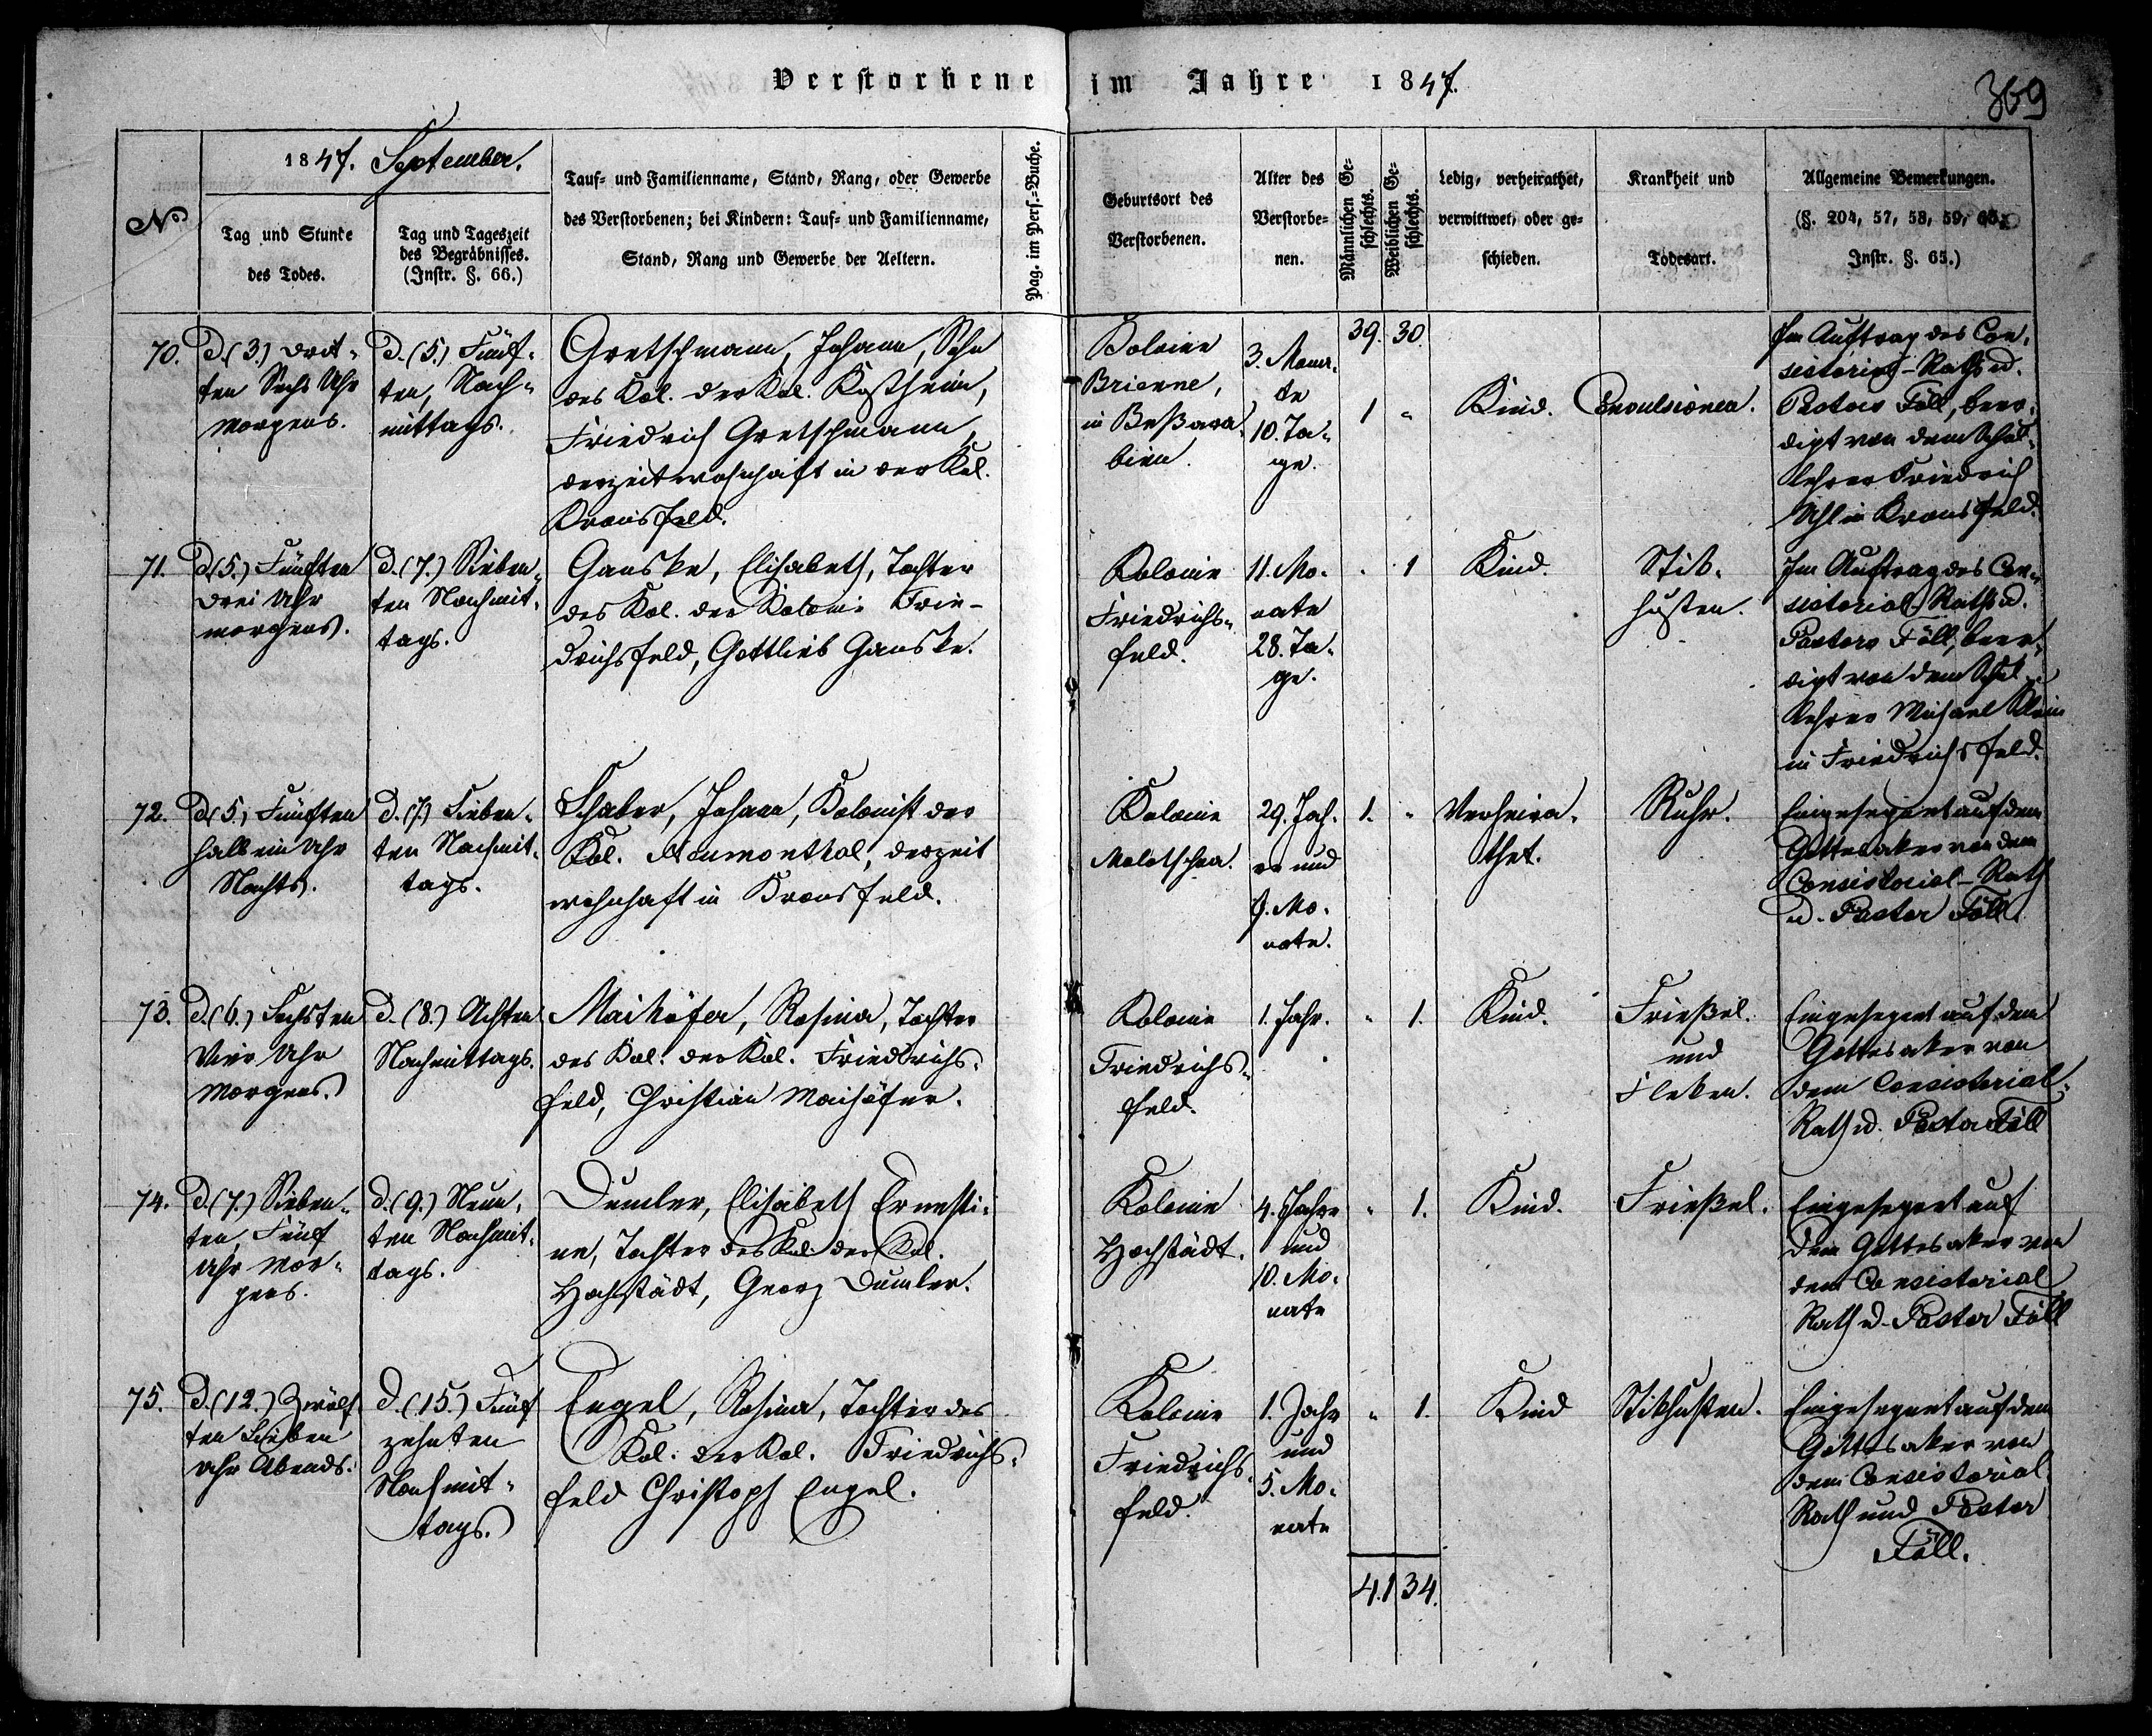 Verstorbene im Jahre 1847.
369
No
1847. September.
Tag und Stunde
des Todes.
Tag und Tageszeit
des Begräbnisses.
(Instr. §. 66.)
Tauf- und Familienname, Stand, Rang, oder Gewerbe
des Verstorbenen; bei Kindern: Tauf- und Familienname,
Stand, Rang und Gewerbe der Aeltern.
Pag. im Pers.-Buche.
Geburtsort des
Verstorbenen.
Alter des
Verstorbe-
nen.
Männlichen Ge-
schlechts.
Weiblichen Ge-
schlechts.
Ledig, verheirathet,
verwittwet, oder ge-
schieden.
Krankheit und
Todesart.
Allgemeine Bemerkungen.
(§. 204, 57, 58, 59, 60.
Instr. §. 65.)
39. 30.
70.
D. (3.) Drit-
ten Sechs Uhr
Morgens.
D. (5.) Fünf-
ten, Nach-
mittags.
Gretschmann, Johann, Sohn
des Kol. der Kol. Kostheim,
Friedrich Gretschmann
derzeit wohnhaft in der Kol.
Kronsfeld.
Kolonie
Brienne,
in Beßara-
bien.
3. Mona-
te
10. Ta-
ge.
1 "
Kind.
Convulsionen.
Im Auftrag des Con-
sistorial-Raths u.
Pastors Föll, beer-
digt von dem Schul-
lehrer Friedrich
in Kronsfeld.
71.
D. (5.) Fünften
Drei Uhr
morgens.
D. (7.) Sieben-
ten Nachmit-
tags.
Ganske, Elisabeth, Tochter
des Kol. der Kolonie Frie-
drichsfeld, Gottlieb Ganske.
Kolonie
Friedrichs-
feld.
11. Mo-
nate
28. Ta-
ge.
" 1
Kind.
Stik-
husten.
Im Auftrag des Con-
sistorial-Raths u.
Pastors Föll, beer-
digt von dem Schul-
lehrer Michael Klein
in Friedrichsfeld.
72.
D. (5.) Fünften
halb ein Uhr
Nachts.
D. (7.) Sieben-
ten Nachmit-
tags.
Schaber, Johann, Kolonist der
Kol. Neumonthal, derzeit
wohnhaft in Kronsfeld.
Kolonie
Molotschna.
29. Jah-
re und
9. Mo-
nate.
1. "
Verheira-
thet.
Ruhr.
Eingesegnet auf dem
Gottesaker von dem
Consistorial-Rath
u. Pastor Föll.
73.
D. (6.) Sechsten
Vier Uhr
Morgens.
D. (8.) Achten
Nachmittags.
Maihöfer, Rosina, Tochter
des Kol. der Kol. Friedrichs-
feld, Christian Maihöfer.
Kolonie
Friedrichs-
feld.
1. Jahr.
" 1.
Kind.
Frießel.
und
Fleken.
Eingesegnet auf dem
Gottesaker von
dem Consistorial-
Rath u. Pastor Föll
74.
D. (7.) Sieben-
ten, Fünf
Uhr Mor-
gens.
D. (9.) Neun-
ten Nachmit-
tags.
Dumler, Elisabeth Ernesti-
ne, Tochter des Kol. der Kol.
Hochstädt, Georg Dumler.
Kolonie
Hochstädt.
4. Jahre
und
10. Mo-
nate
" 1.
Kind.
Frießel.
Eingesegnet auf
dem Gottesaker von
dem Consistorial
Rath u. Pastor Föll
75.
D. (12.) Zwölf-
ten Sieben
Uhr Abends.
D. (15.) Fünf
zehnten
Nachmit-
tags.
Engel, Rosina, Tochter des
Kol. der Kol. Friedrichs-
feld Christoph Engel.
Kolonie
Friedrichs-
feld.
1. Jahr
und
5. Mo-
nate
" 1.
Kind
Stikhusten.
Eingesegnet auf dem
Gottesaker von
dem Consistorial-
Rath und Pastor
Föll.
41 34.